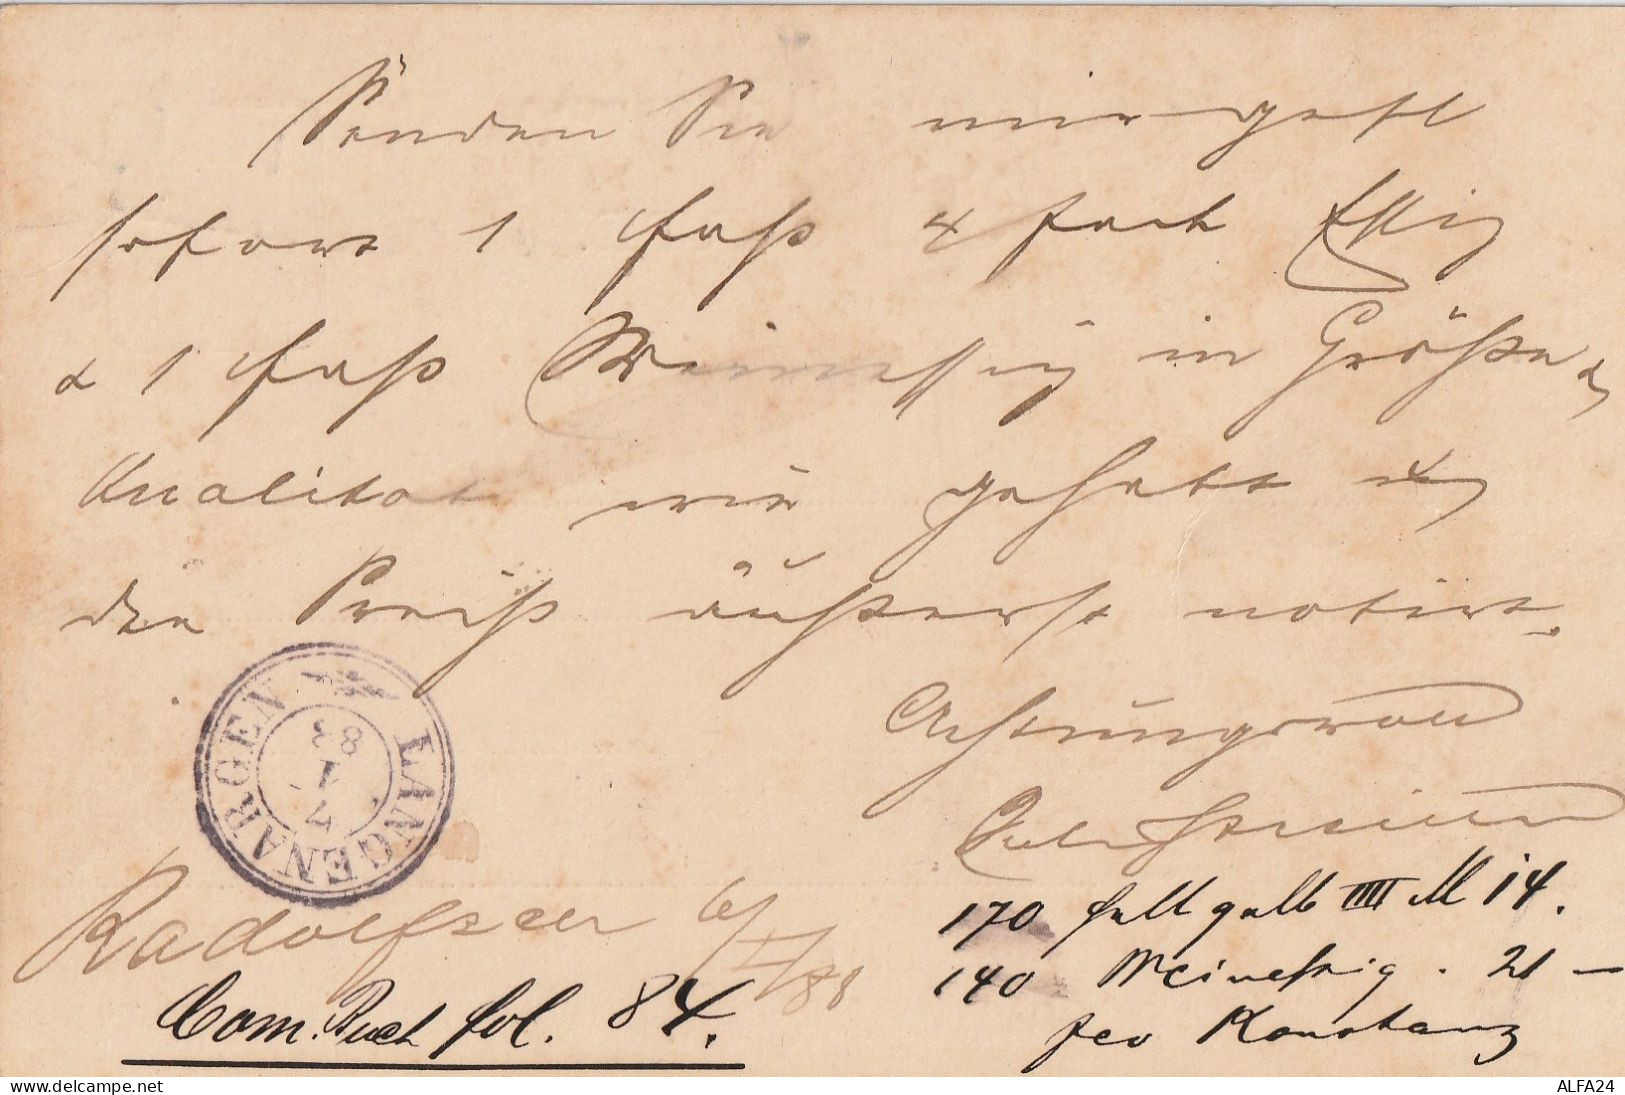 Senden Sie mir gefl
sofort 1 Faß 4 fach Essig
& 1 Faß Weinessig in Größe &
Qualität wie gehabt &
den Preiß äußerst notirt.
Achtungsvoll
LANGENARGEN
7
I
88
Radolfzell 6/I/88
Com. Buch fol. 84.
170 hell gelb IIII M 14.
140 Weinessig . 21 —
fco Konstanz
delcampe.net
ALFA24